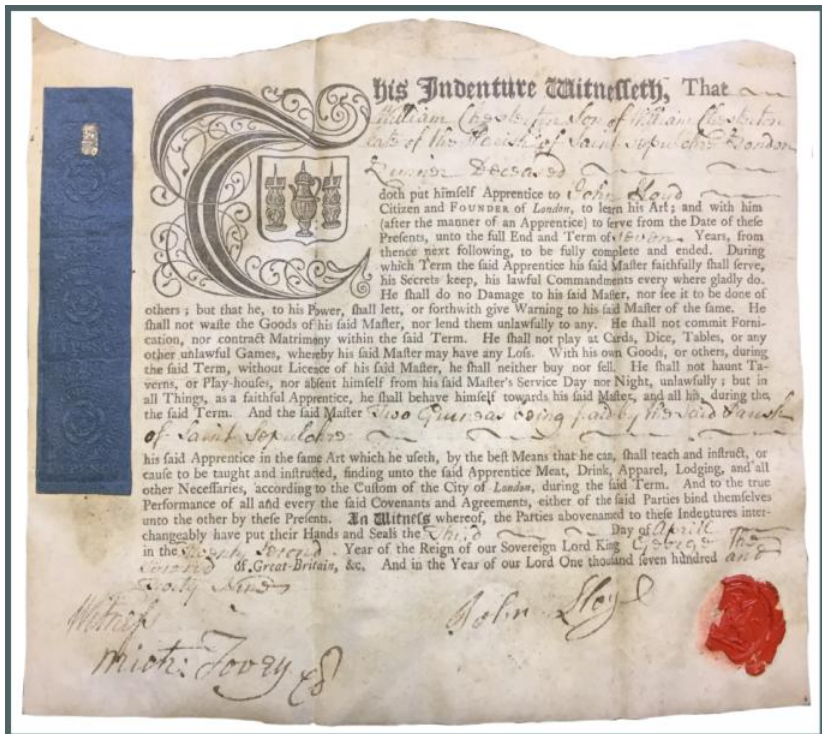 This Indenture Witnesseth, That
William Chesterton Son of William Chesterton
late of the Parish of Saint Sepulchre London
Deceased
doth put himself Apprentice to John Lloyd
Citizen and FOUNDER of London, to learn his Art; and with him
(after the manner of an Apprentice) to serve from the Date of these
Presents, unto the full End and Term of seven Years, from
thence next following, to be fully complete and ended. During
which Term the said Apprentice his said Master faithfully shall serve,
his Secrets keep, his lawful Commandments every where gladly do.
He shall do no Damage to his said Master, nor see it to be done of
others; but that he, to his Power, shall lett, or forthwith give Warning to his said Master of the same. He
shall not waste the Goods of his said Master, nor lend them unlawfully to any. He shall not commit Forni-
cation, nor contract Matrimony within the said Term. He shall not play at Cards, Dice, Tables, or any
other unlawful Games, whereby his said Master may have any Loss. With his own Goods, or others, during
the said Term, without Licence of his said Master, he shall neither buy nor sell. He shall not haunt Ta-
verns, or Play-houses, nor absent himself from his said Master's Service Day nor Night, unlawfully; but in
all Things, as a faithful Apprentice, he shall behave himself towards his said Master, and all his, during the
the said Term. And the said Master Two Guineas being paid by the said Parish
of Saint Sepulchre
his said Apprentice in the same Art which he useth, by the best Means that he can, shall teach and instruct, or
cause to be taught and instructed, finding unto the said Apprentice Meat, Drink, Apparel, Lodging, and all
other Necessaries, according to the Custom of the City of London, during the said Term. And to the true
Performance of all and every the said Covenants and Agreements, either of the said Parties bind themselves
unto the other by these Presents. In Witness whereof, the Parties abovenamed to these Indentures inter-
changeably have put their Hands and Seals the Third Day of April
in the Twenty Second Year of the Reign of our Sovereign Lord King George the
Second of Great-Britain, &c. And in the Year of our Lord One thousand seven hundred and
Forty Nine
Witness
John Lloyd
Mich: Tovey